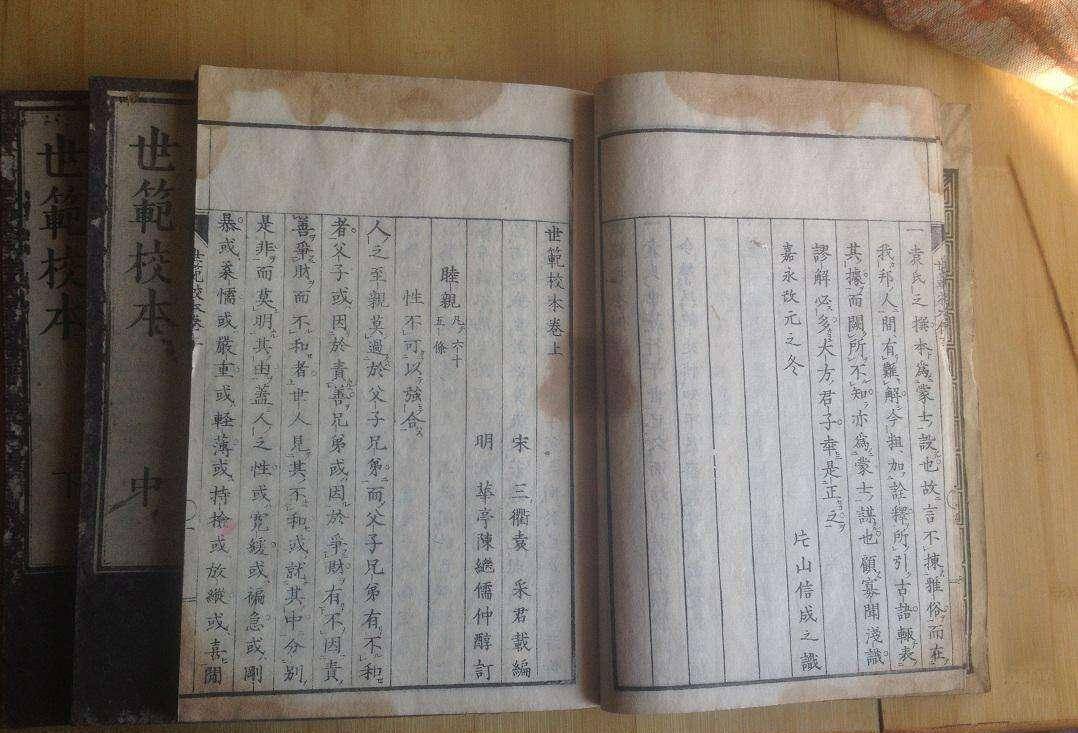 一袁氏之撰本為蒙士設也故言不揀雅俗而在
我邦人間有難解今粗加詮釋所引古語輙表
其據而闕所不知亦為蒙士謀也顧寡聞淺識
謬解必多大方君子幸是正之
嘉永改元之冬
片山信成之識
世範校本卷上
宋 三衢袁 采君載編
明 華亭陳繼儒仲醇訂
睦親凡六十五條
性不可以強合
人之至親莫過於父子兄弟而父子兄弟有不和
者父子或因於責善兄弟或因於爭財有不因責
善爭財而不和者世人見其不和或就其中分別
是非而莫明其由蓋人之性或寬緩或褊急或剛
暴或柔懦或嚴重或輕薄或持檢或放縱或喜閒
世範校本 中
世範校本 下